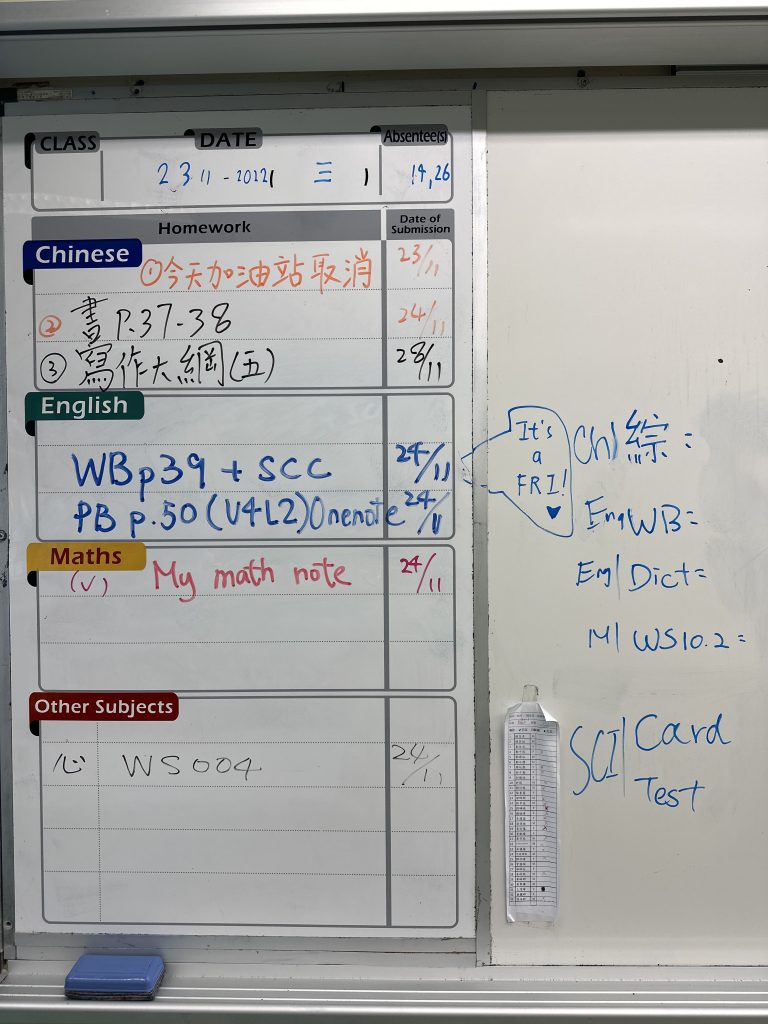 CLASS DATE Absentee(s)
23 11-2022( 三 ) 19,26
Homework Date of Submission
Chinese
①今天加油站取消 23/11
② 書 P.37-38 24/11
③ 寫作大綱(五) 28/11
English
WB p39 + SCC 24/11
PB p.50 (V4L2) Onenote 24/11
Maths
(✓) My math note 24/11
Other Subjects
心 WS004 24/11
It's
a
FRI!
Ch) 綜:
Eng WB=
Eng| Dict=
M| WS10.2=
SCI| Card
Test